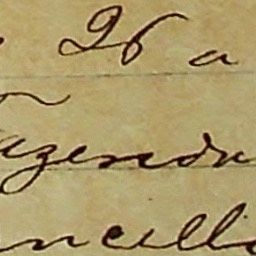 26 a
Fazenda
ncelli